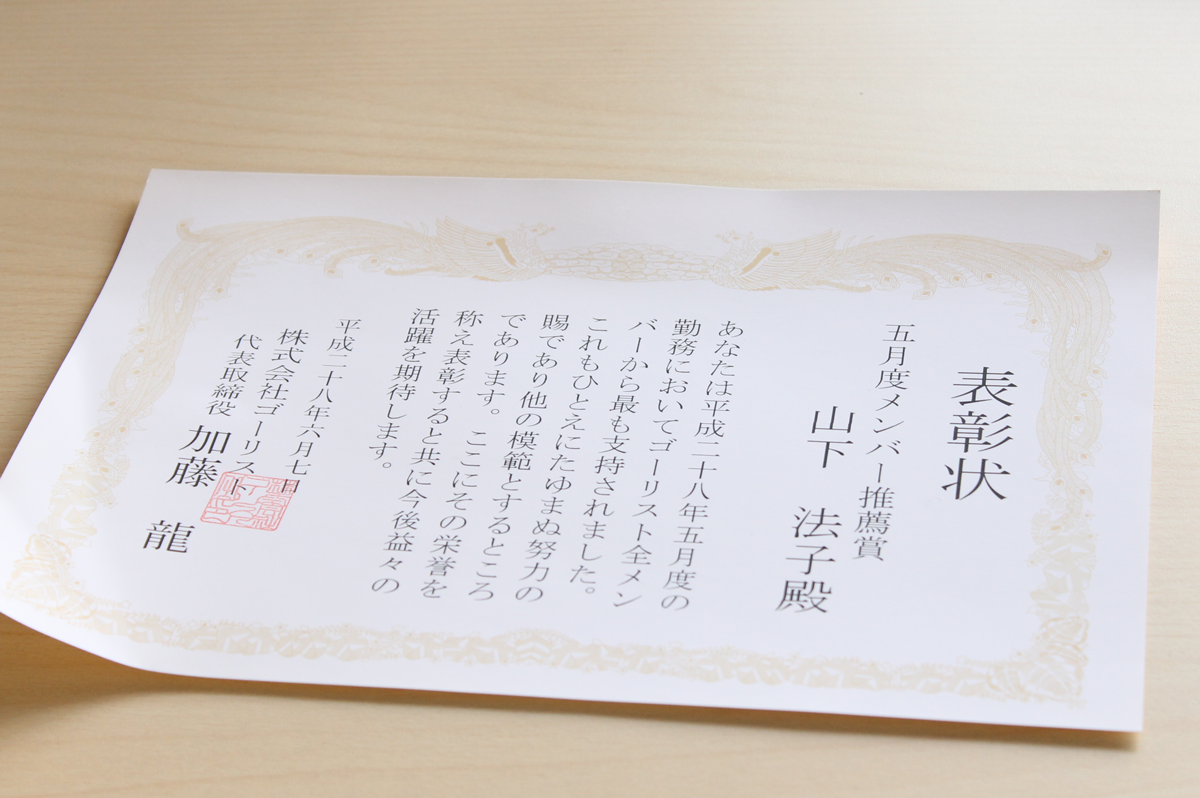 表彰状
五月度メンバー推薦賞
山下 法子殿
あなたは平成二十八年五月度の
勤務においてゴーリスト全メン
バーから最も支持されました。
これもひとえにたゆまぬ努力の
賜であり他の模範とするところ
であります。ここにその栄誉を
称え表彰すると共に今後益々の
活躍を期待します。
平成二十八年六月七日
株式会社ゴーリスト
代表取締役 加藤 龍